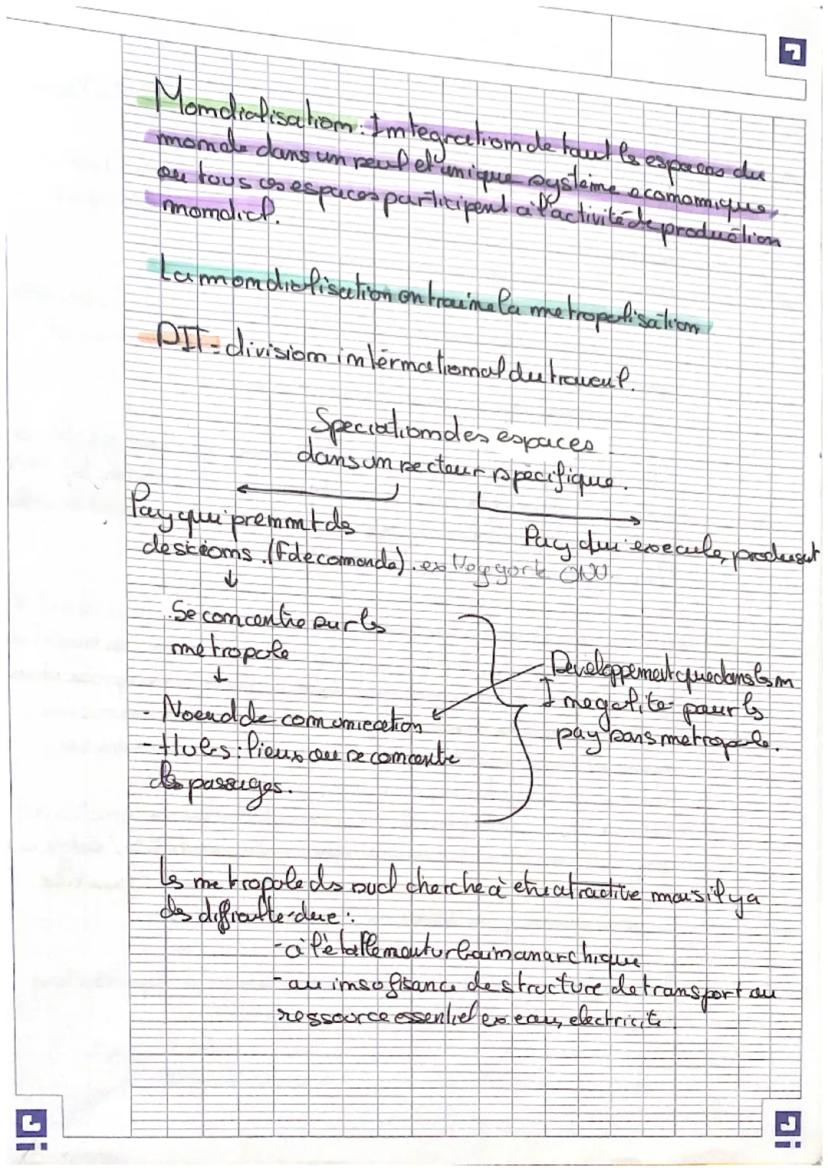 Mondialisation : Integration de tout les espaces du
monde dans un seul et unique système economique,
ou tous ces espaces participent à l'activité de production
mondial.
La mondialisation entraine la metropolisation
DIT = division international du travail.
Speciation des espaces
dans un secteur spécifique.
Pay qui prennnt des
descions. (F de comande). ex
ONU
Pay qui execute, produisent
Se concentre sur les
metropole
- Noeud de comunication
- Hubs : lieux ou se concentre
des passages.
Developpement que dans les m
Inegalite pour les
pay sans metropole.
les metropole ds sud cherche à etre atractive mais il y a
des difficulte due :
- à l'étallement urbain anarchique
- au insofisance de structure de transport ou
ressource essentiel ex eau, electricite.